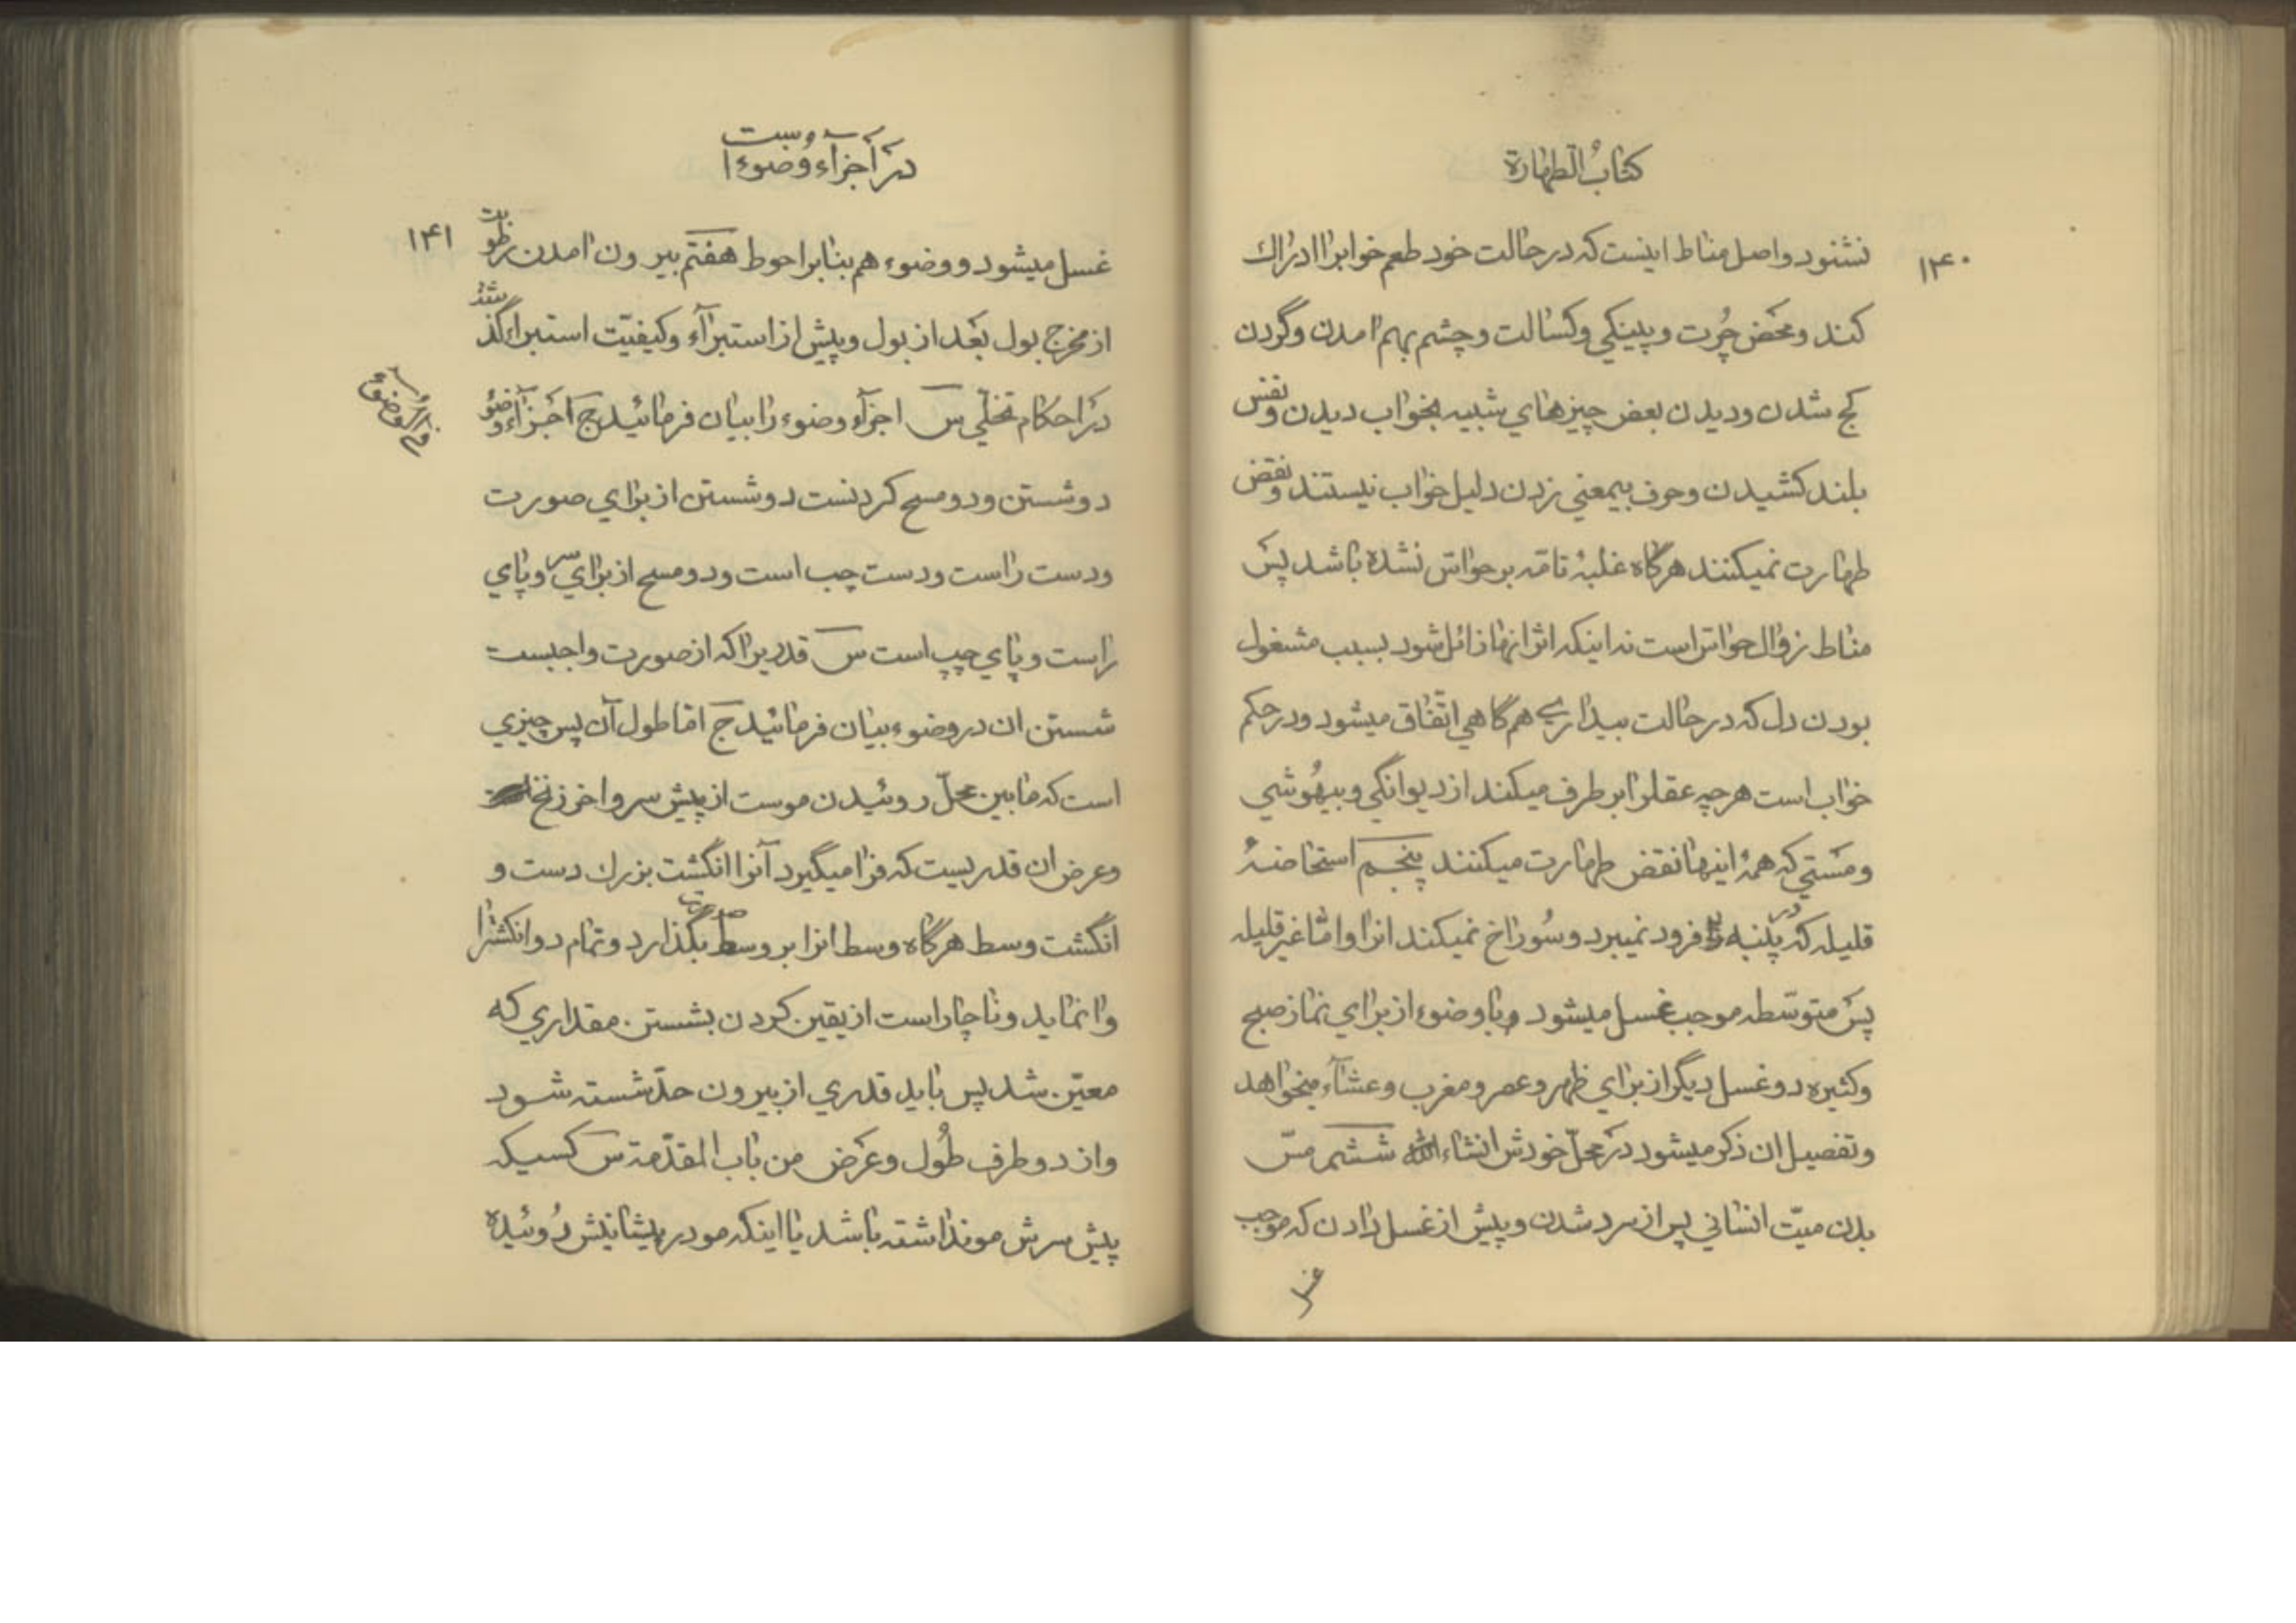 كتاب الطهارة
۱۴۰
نشنود واصل مناط اینست که در حالت خود طعم خوابرا ادراك
کند ومحض چُرت وپینکي وکسالت وچشم بهم امدن وگردن
کج شدن ودیدن بعض چیزهاي شبیه بخواب دیدن ونفس
بلند کشیدن وحرف بیمعني زدن دلیل خواب نیستند ونقض
طهارت نمیکنند هرگاه غلبۀ تامّه برحواسّ نشده باشد پس
مناط زوال حواسّ است نه اینکه اثر انها زائل شود بسبب مشغول
بودن دل که در حالت بیداري هم گاهي اتّفاق میشود ودر حکم
خواب است هرچه عقلرا بر طرف میکند از دیوانگي وبیهُوشي
ومستي که همۀ اینها نقض طهارت میکنند پنجم استحاضۀ
قلیله که در پنبه فرود نمیبرد وسُوراخ نمیکند انرا وامّا غیر قلیله
پس متوسّطه موجب غسل میشود وبا وضوء از براي نماز صبح
وکثیره دو غسل دیگر از براي ظهر وعصر ومغرب وعشآء میخواهد
وتفصیل ان ذکر میشود در محلّ خودش انشاء الله ششم مسّ
بدن میّت انساني پس از سرد شدن وپیش از غسل دادن که موجب
غسل
در اجزآء وضوء است
۱۴۱
غسل میشود ووضوء هم بنابر احوط هفتم بیرون امدن رطوبت
از مخرج بول بعد از بول وپیش از استبرآء وکیفیّت استبراء گذشت
در احکام تخلّي س اجزآء وضوء را بیان فرمائید ج اجزآء وضو
دو شستن ودو مسح کردنست دو شستن از براي صورت
ودست راست ودست چپ است ودو مسح از براي سر وپاي
راست وپاي چپ است س قدریرا که از صورت واجبست
شستن ان در وضوء بیان فرمائید ج امّا طول آن پس چیزي
است که مابین محلّ روئیدن موست از پیش سر واخر زنخ
وعرض ان قدریست که فرا میگیرد آنرا انگشت بزرك دست و
انگشت وسط هرگاه وسط انرا بر وسط صورت بگذارد وتمام دو انکشترا
وانماید وناچار است از یقین کردن بشستن مقداري که
معیّن شد پس باید قدري از بیرون حدّ شسته شود
واز دو طرف طُول وعَرض من باب المقدّمة س کسیکه
پیش سرش مو نداشته باشد یا اینکه مو در پیشانیش رُوئیده